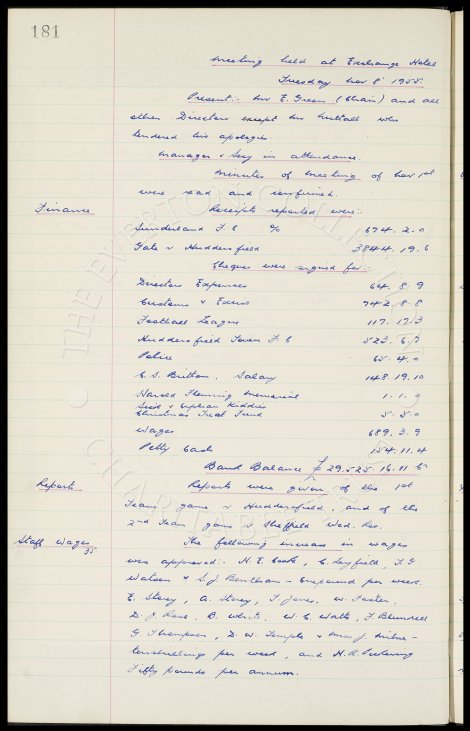 181
Meeting held at Exchange Hotel
Tuesday Nov 8th 1955.
Present:- Mr E. Green (Chair) and all
other Directors except Mr Nuttall who
tendered his apologies.
Manager & Secy in attendance.
Minutes of Meeting of Nov 1st
were read and confirmed.
Finance Receipts reported were:-
Sunderland F.C. % 674. 2. 0
Gate v Huddersfield 3844. 19. 6
Cheques were signed for:-
Directors Expenses 64. 8. 9
Customs & Excise 742. 8. 8
Football League 117. 17. 3
Huddersfield Town F.C 523. 6. 7
Police 65. 4. 0
C.S. Britton. Salary 148. 19. 10
Harold Fleming Memorial 1. 1. 0
Sick & Orphan Kiddies
Christmas Treat Fund 5. 5. 0
Wages 689. 3. 9
Petty Cash 154. 11. 4
Bank Balance £29.525. 16. 11
Reports Reports were given of the 1st
Team game v Huddersfield, and of the
2nd Team game v Sheffield Wed. Res.
Staff Wages The following increases in wages
35
were approved:- H.E. Cook, C. Leyfield, T.G
Watson & S.J. Bentham - One pound per week.
E. Storey, A. Storey, T. Jones, W. Foster,
D.J. Rose, B. White, W.C. Watts, F. Blundell
G. Thompson, D.W. Temple & Miss J. Milne -
Ten shillings per week, and H.R. Pickering
Fifty pounds per annum.
THE EVERTON COLLECTION CHARITABLE TRUST